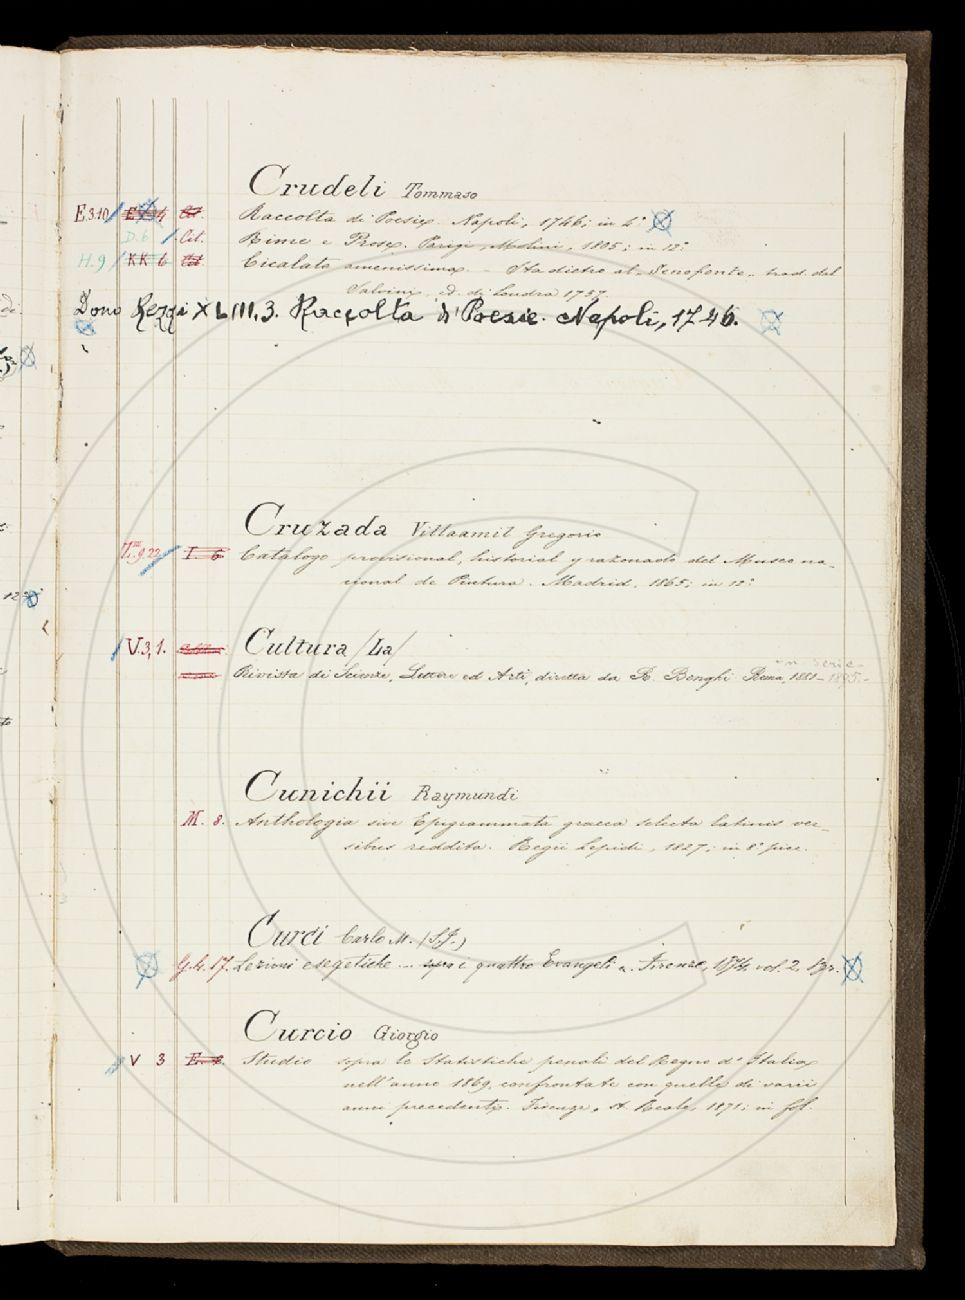 Crudeli Tommaso
E.3.10 Raccolta di Poesie. Napoli, 1746; in 4°
D.6 Cit. Rime e Prose. Parigi, Molini, 1805; in 12°
H.9 KK 6 Cicalata amenissima. - Sta dietro al "Senofonte" trad. dal
Salvini, ed. di Londra 1737.
Dono Rezzi XLIII.3. Raccolta di Poesie. Napoli, 1746.
Cruzada Villaamil Gregorio
I. 6 Catálogo provisional, historial y razonado del Museo na-
cional de Pintura. Madrid, 1865; in 12°
V.3,1. Cultura /La/
in serie
Rivista di Scienze, Lettere ed Arti, diretta da R. Bonghi Roma, 1881-1895.-
Cunichii Raymundi
M. 8. Anthologia sive Epigrammata graeca selecta latinis ver-
sibus reddita. Regii Lepidi, 1827; in 8° picc.
Curci Carlo M. (S.J.)
G.4.17. Lezioni esegetiche ... sopra i quattro Evangeli. Firenze, 1874, vol. 2,
Curcio Giorgio
V 3 E. 8. Studio sopra le Statistiche penali del Regno d'Italia
nell'anno 1869, confrontate con quelle di varii
anni precedenti. Firenze, St. Reale, 1871; in fol.